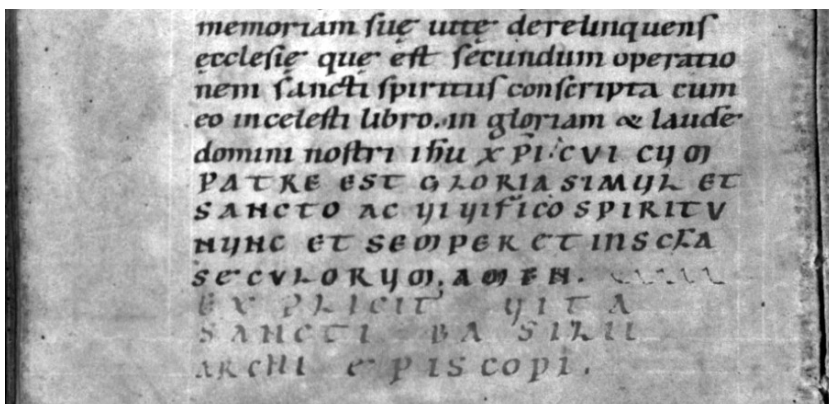 memoriam suę uitę derelinquens
ęcclesię que est secundum operatio
nem sancti spiritus conscripta cum
eo incelesti libro. in gloriam & laudē
domini nostri ihu xpi. CVI CVM
PATRE EST GLORIA SIMVL ET
SANCTO AC VIVIFICO SPIRITV
NVNC ET SEMPER ET IN SCLA
SECVLORVM. AMEN.
EXPLICIT VITA
SANCTI BASILII
ARCHIEPISCOPI.